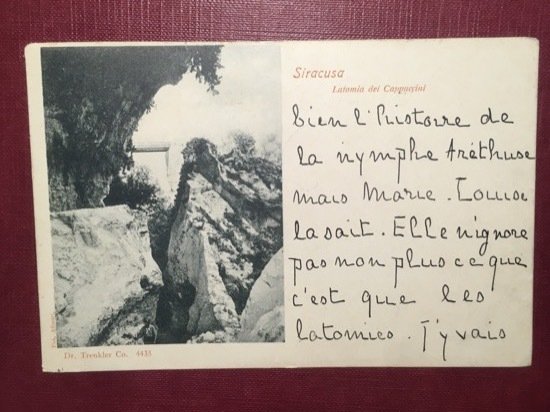 Siracusa
Latomia dei Cappuccini
bien l'histoire de
la nymphe Aréthuse
mais Marie-Louise
la sait. Elle n'ignore
pas non plus ce que
c'est que les
latomies. J'y vais
Dr. Trenkler Co. 4435